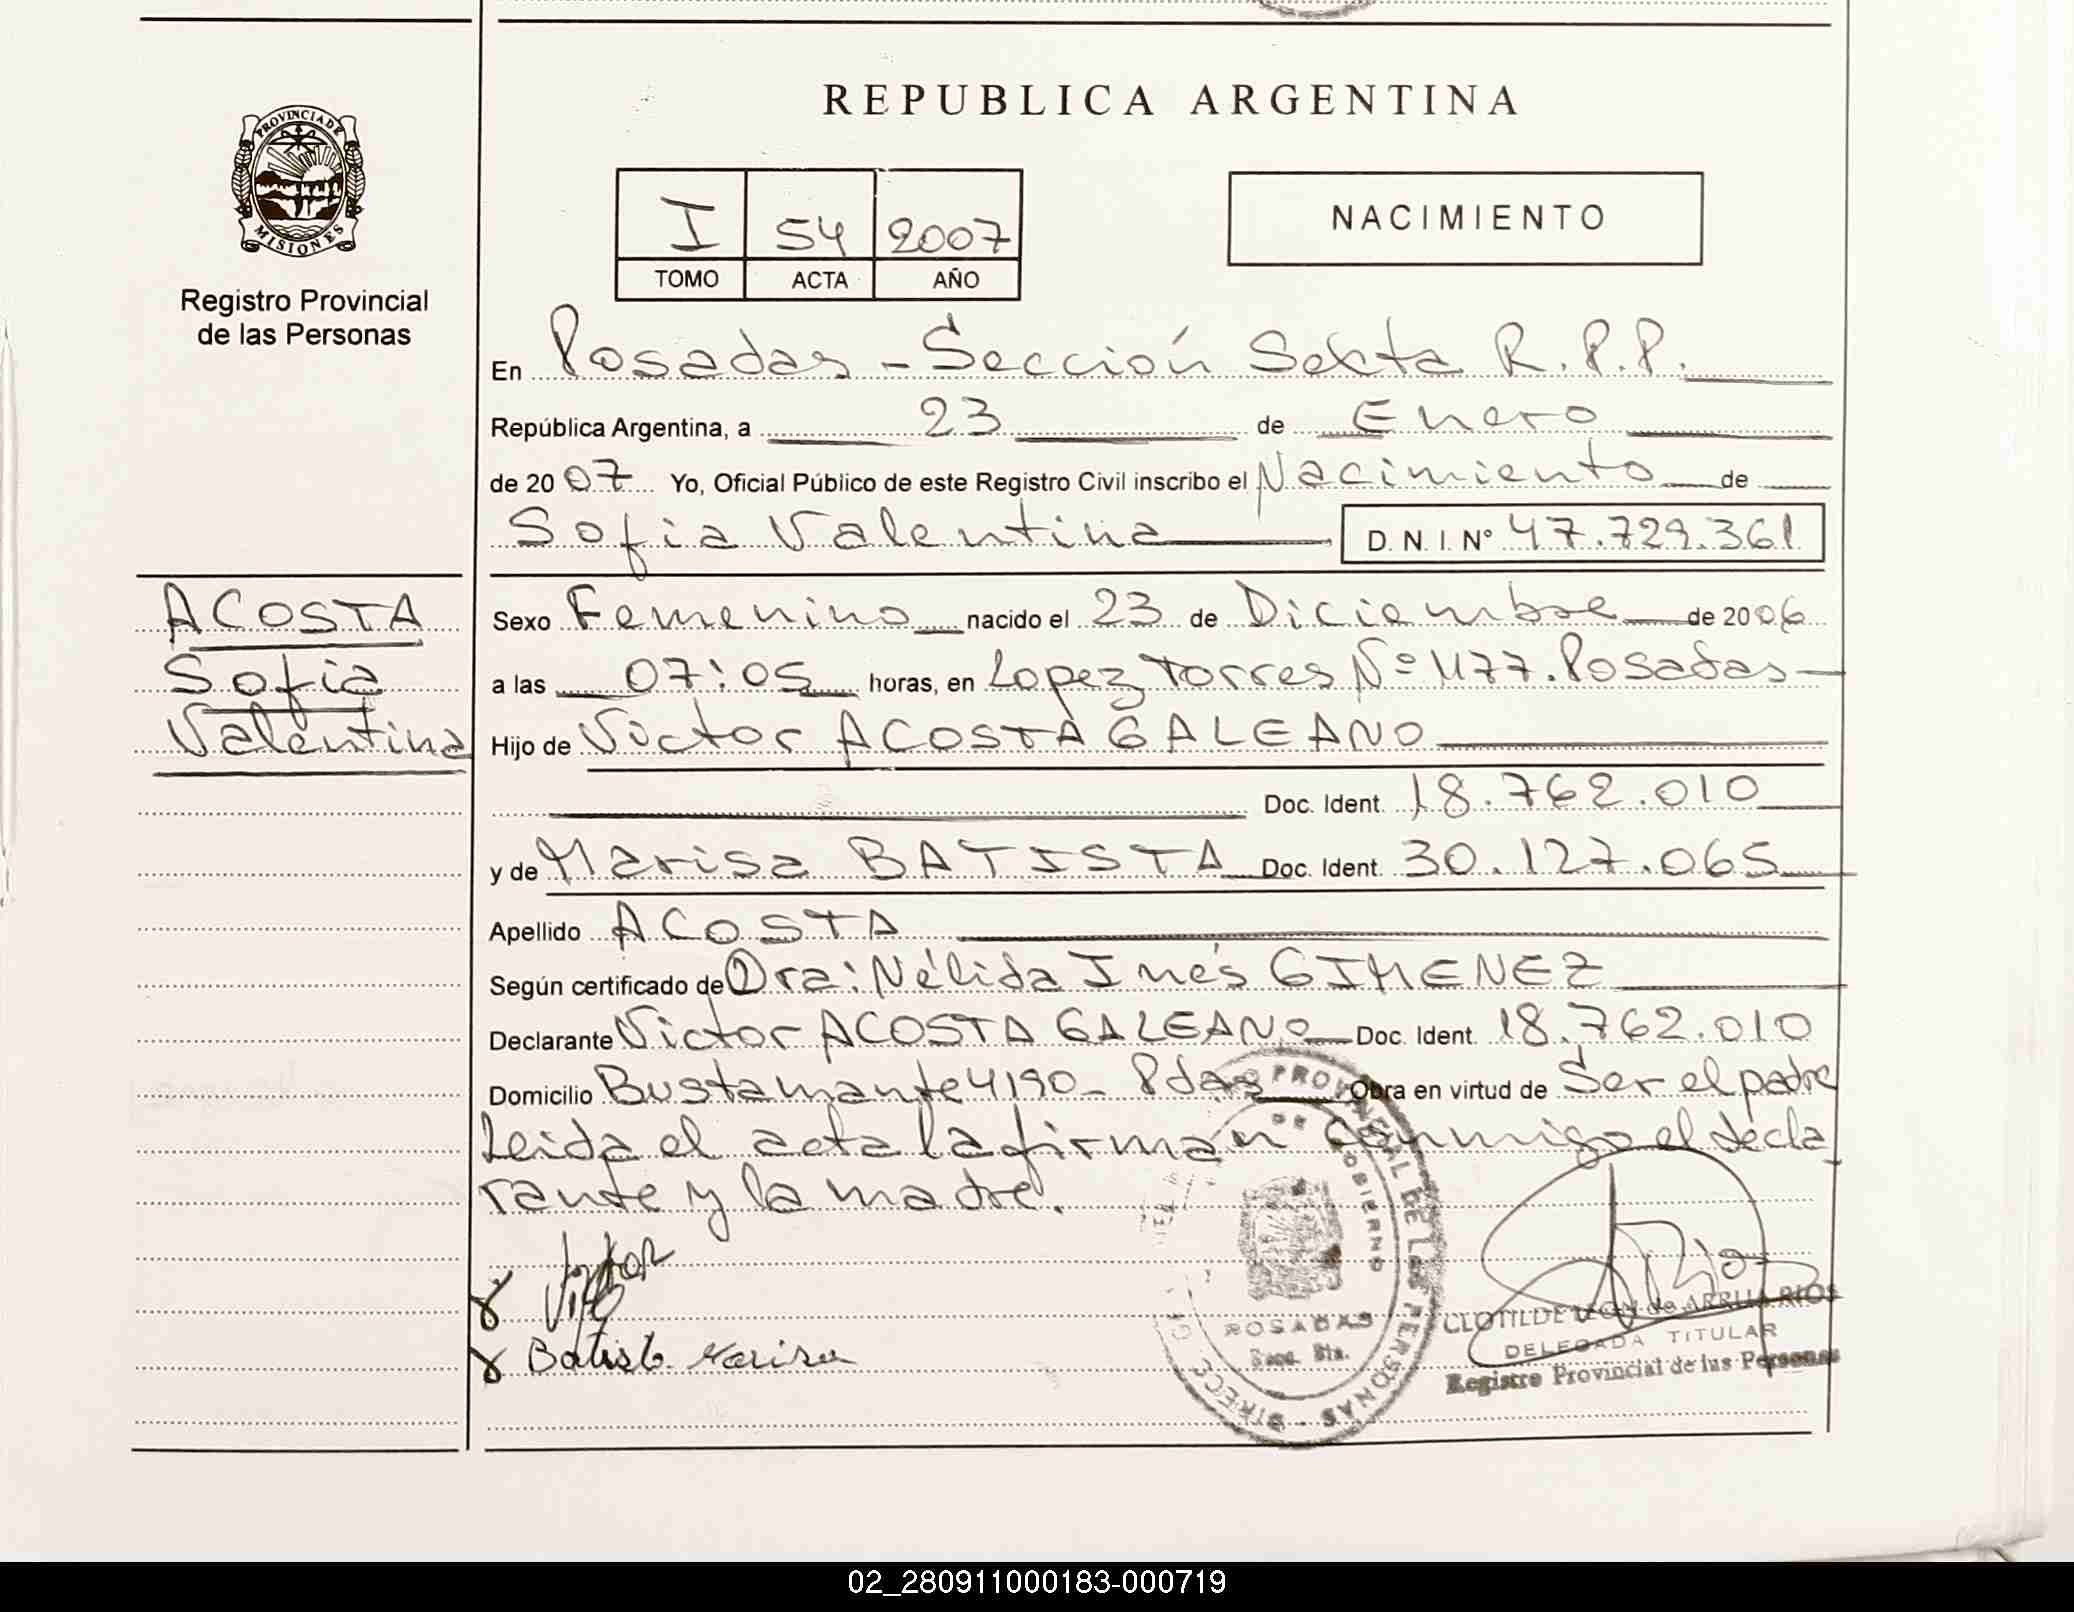 REPUBLICA ARGENTINA
PROVINCIA DE
MISIONES
Registro Provincial
de las Personas
I 54 2007
TOMO ACTA AÑO
NACIMIENTO
En Posadas - Sección Sexta R.P.P.
República Argentina, a 23 de Enero
de 2007 Yo, Oficial Público de este Registro Civil inscribo el Nacimiento de
Sofia Valentina D.N.I. Nº 47.729.361
ACOSTA
Sofia
Valentina
Sexo Femenino nacido el 23 de Diciembre de 2006
a las 07:05 horas, en Lopez Torres Nº 1177. Posadas
Hijo de Victor ACOSTA GALEANO
Doc. Ident. 18.762.010
y de Marisa BATISTA Doc. Ident. 30.127.065
Apellido ACOSTA
Según certificado de Dra: Nélida Inés GIMENEZ
Declarante Victor ACOSTA GALEANO Doc. Ident. 18.762.010
Domicilio Bustamante 4190 - Pdas Obra en virtud de Ser el padre
Leida el acta la firman conmigo el decla
rante y la madre.
Victor
Batista Marisa
PROVINCIAL DE LAS PERSONAS
DE GOBIERNO
POSADAS
Secc. 6ta.
CLOTILDE LEON de ARRUA RIOS
DELEGADA TITULAR
Registro Provincial de las Personas
02_280911000183-000719